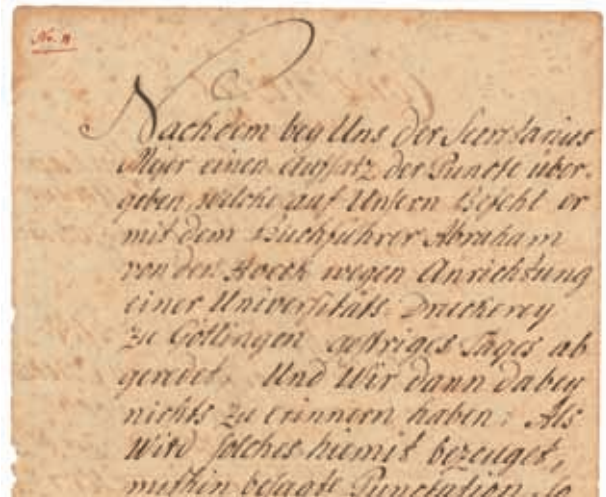 No. 11
Nachdem bey Uns der Secretarius
Meyer einen Aufsatz der Puncte über-
geben, welche auf Unsern Befehl er
mit dem Buchführer Abraham
von den Hoeck wegen Anrichtung
einer Universitäts Druckerey
zu Göttingen gestriges Tages ab
geredet, Und Wir dann dabey
nichts zu erinnern haben; Als
Wird solches hiemit bezeuget,
mithin besagte Punctation, so